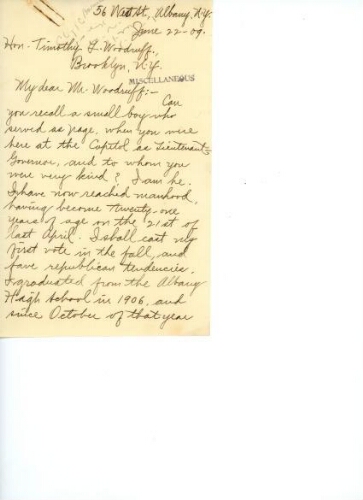 56 West St., Albany, N.Y.
June 22-09.
Hon. Timothy L. Woodruff,
Brooklyn, N.Y.
MISCELLANEOUS
My dear Mr. Woodruff:-
Can
you recall a small boy who
served as page, when you were
here at the Capitol as Lieutenant
Governor, and to whom you
were very kind? I am he.
I have now reached manhood,
having become twenty-one
years of age on the 21st of
last April. I shall cast my
first vote in the fall, and
have republican tendencies.
I graduated from the Albany
High School in 1906, and
since October of that year